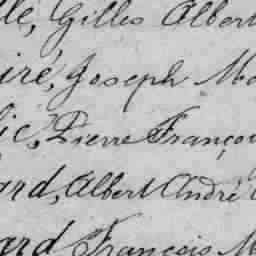 lle, Gilles Albert
iré, Joseph Ma
ic, Pierre Françoi
ard, Albert André
ard François M